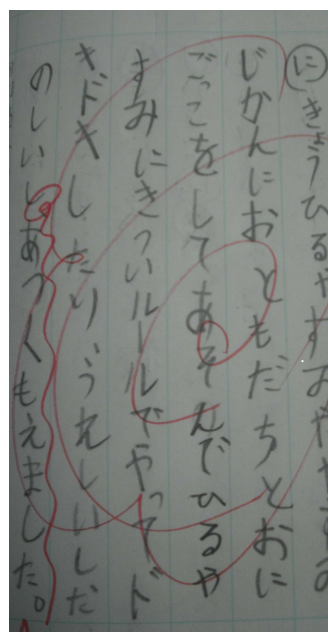 にきょうひるやすみやすみの
じかんにおともだちとおに
ごっこをしてあそんでひるや
すみにきついルールでやってド
キドキしたりうれしいしだ
のしいとあつくもえました。